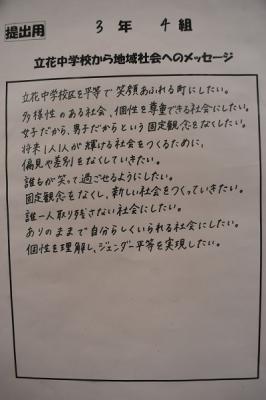 提出用
3年 4組
立花中学校から地域社会へのメッセージ
立花中学校区を平等で笑顔あふれる町にしたい。
多様性のある社会、個性を尊重できる社会にしたい。
女子だから、男子だからという固定観念をなくしたい。
将来1人1人が輝ける社会をつくるために、
偏見や差別をなくしていきたい。
誰もが笑って過ごせるようにしたい。
固定観念をなくし、新しい社会をつくっていきたい。
誰一人取り残さない社会にしたい。
ありのままで自分らしくいられる社会にしたい。
個性を理解し、ジェンダー平等を実現したい。